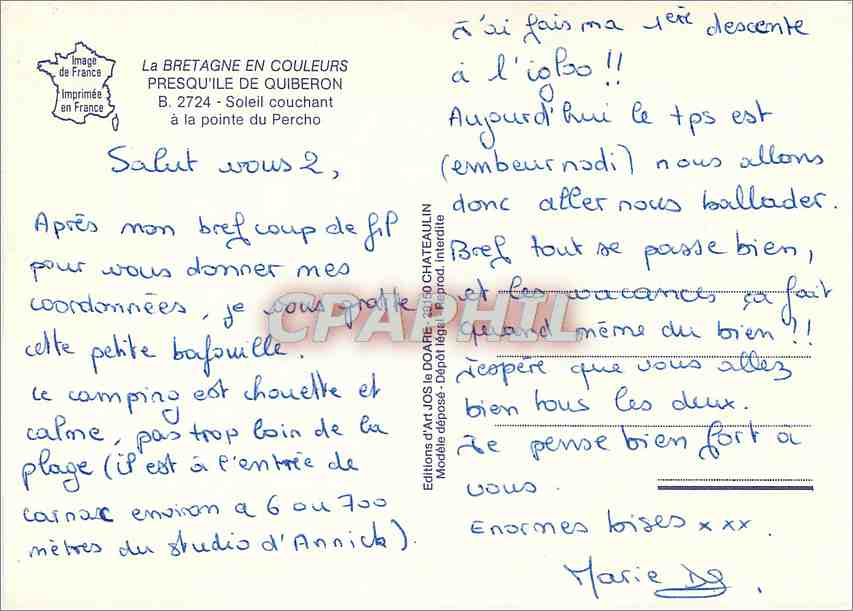 Image
de France
Imprimée
en France
La BRETAGNE EN COULEURS
PRESQU'ILE DE QUIBERON
B. 2724 - Soleil couchant
à la pointe du Percho
Salut vous 2,
Après mon bref coup de fil
pour vous donner mes
coordonnées, je vous gratte
cette petite bafouille.
Le camping est chouette et
calme, pas trop loin de la
plage (il est à l'entrée de
carnac environ a 6 ou 700
mètres du studio d'Annick).
Editions d'Art JOS le DOARE - 29150 CHATEAULIN
Modèle déposé - Dépôt légal - Reprod. Interdite
J'ai fais ma 1ère descente
à l'igloo !!
Aujourd'hui le tps est
(embeurnodi) nous allons
donc aller nous ballader.
Bref tout se passe bien,
et les vacances ça fait
quand même du bien !!
J'espère que vous allez
bien tous les deux.
Je pense bien fort à
vous.
Enormes bises xxx.
Marie
CPAPHIL